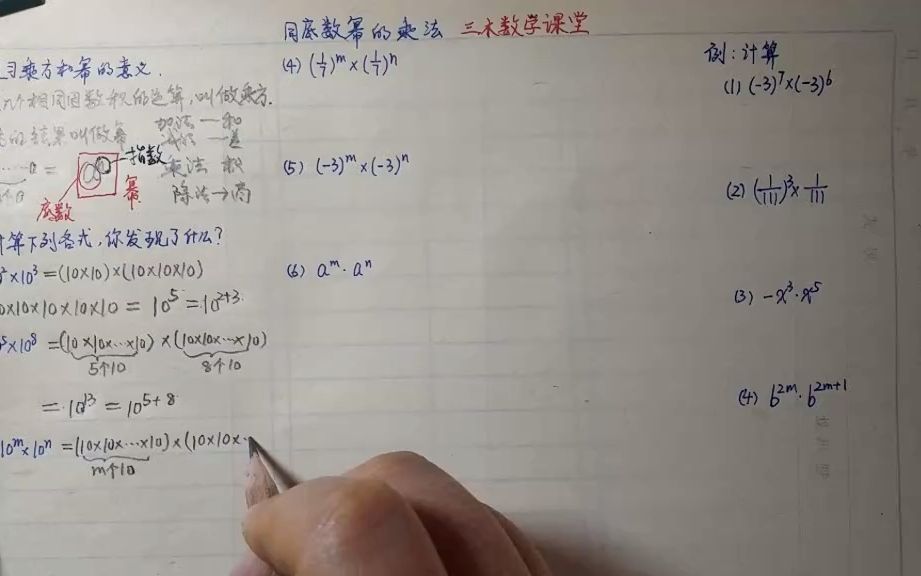 同底数幂的乘法 三木数学课堂
习乘方和幂的意义.
个相同因数积的运算,叫做乘方.
的结果叫做幂
加法—和
减法—差
乘法 积
除法→商
a =
指数
幂
底数
计算下列各式,你发现了什么?
10²×10³=(10×10)×(10×10×10)
10×10×10×10×10=10⁵=10²⁺³
10⁵×10⁸=(10×10×…×10)×(10×10×…×10)
5个10 8个10
=10¹³=10⁵⁺⁸
10ᵐ×10ⁿ=(10×10×…×10)×(10×10×
m个10
(4) (1/7)ᵐ×(1/7)ⁿ
(5) (-3)ᵐ×(-3)ⁿ
(6) aᵐ·aⁿ
例:计算
(1) (-3)⁷×(-3)⁶
(2) (1/111)³×1/111
(3) -x³·x⁵
(4) b²ᵐ·b²ᵐ⁺¹